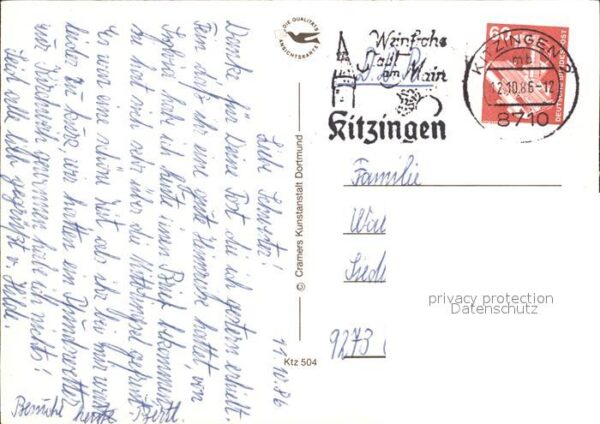 11.10.86
Liebe Schwester!
Danke für Deine Post die ich gestern erhielt.
Fein daß ihr eine gute Heimreise hattet, von
Ingrid hab ich heute einen Brief bekommen
sie hat sich über die
Es war eine schöne Zeit als ihr bei mir wart
leider zu kurz, wir hatten ein
vom gewonnen habe ich nichts!
Seid alle lieb gegrüßt v. Hilde.
Besuche heute Bertl.
DIE QUALITÄTS
ANSICHTSKARTE
© Cramers Kunstanstalt Dortmund
Ktz 504
Weinfrohe
Stadt
am Main
Kitzingen
60
DEUTSCHE BUNDESPOST
KITZINGEN
mb
12.10.86-12
8710
Familie
Wal
Siede
9273
privacy protection
Datenschutz